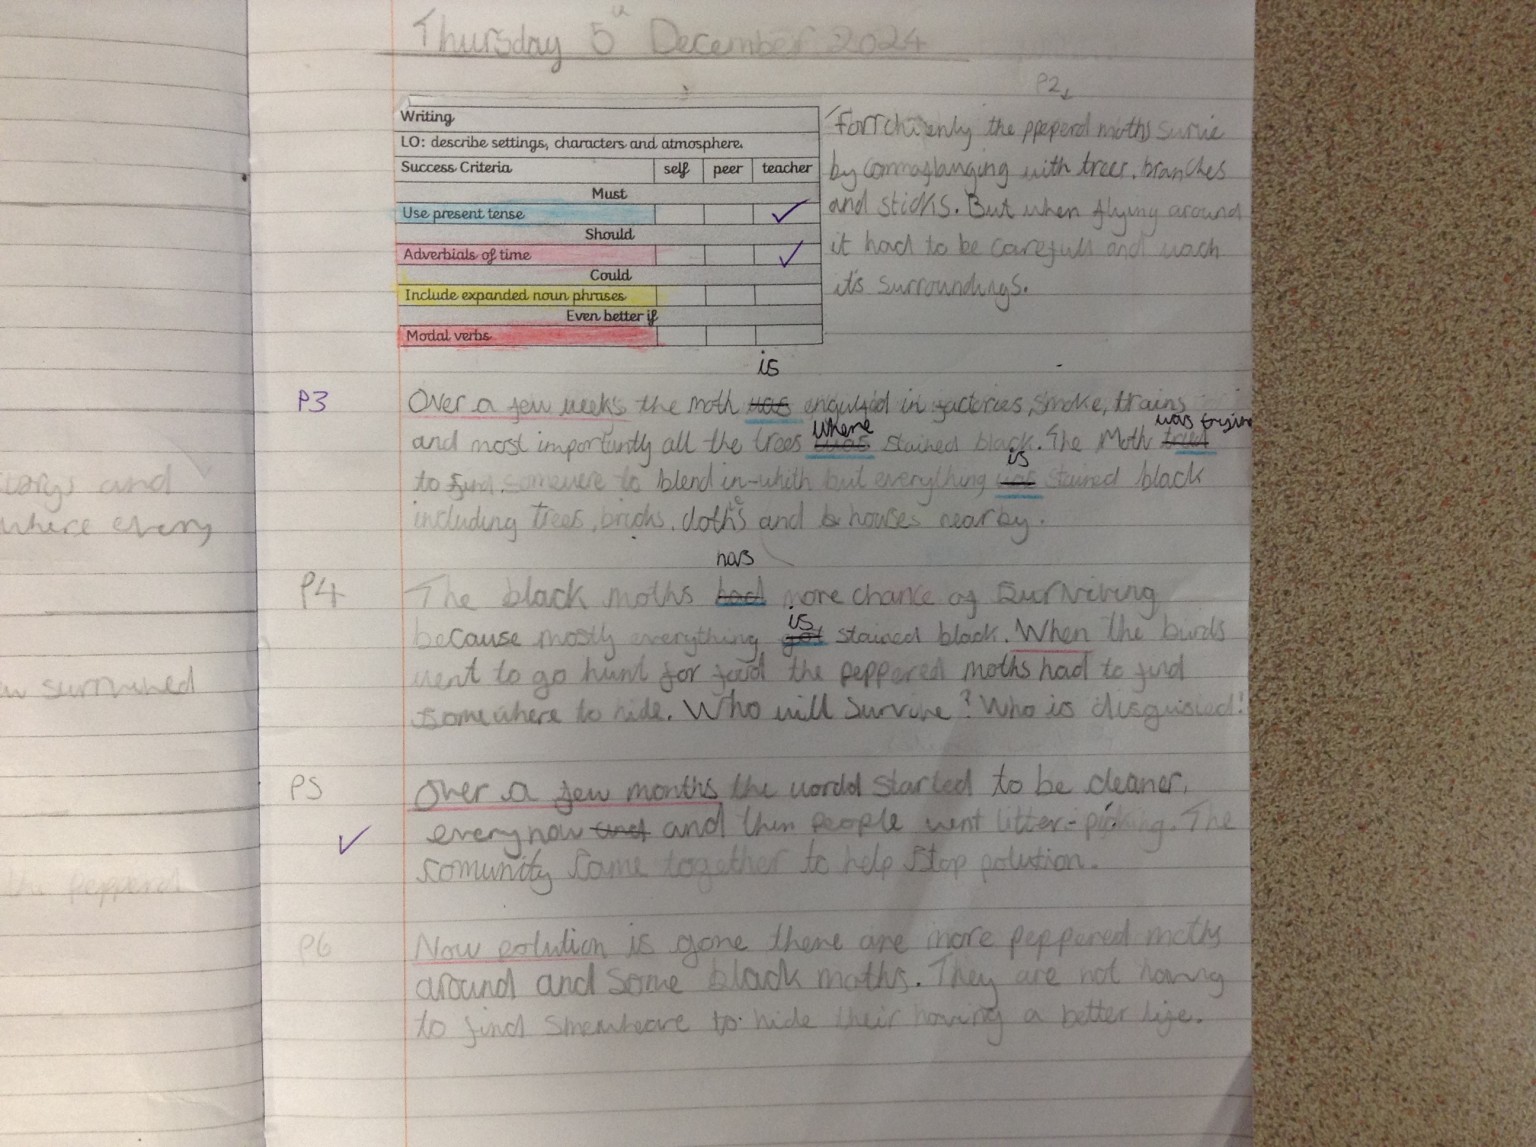 Thursday 5th December 2024
Writing
LO: describe settings, characters and atmosphere.
Success Criteria self peer teacher
Must
Use present tense ✓
Should
Adverbials of time ✓
Could
Include expanded noun phrases
Even better if
Modal verbs
P2
the ppeperd moths survie
by with trees, branches
and sticks. But when flying around
it had to be carefull and wach
it's surroundings.
is
P3 Over a few weeks the moth was engulfed in factories, smoke, trains
where was trying
and most importantly all the trees was stained black. The Moth tried
is
to find somewere to blend in-whith but everything was stained black
including trees, bricks, cloths and houses nearby.
has
P4 The black moths had more chance of Surviving
is
because mostly everything got stained black. When the birds
went to go hunt for food the peppered moths had to find
somewhere to hide. Who will Survive? Who is disguisied!
P5 Over a few months the world started to be cleaner,
everynow and and then people went litter-picking. The
comunity came together to help stop polution.
P6 Now polution is gone there are more peppered moths
around and some black moths. They are not having
to find smewheare to hide their having a better life.
torys and
where every
surrwned
the pepperd